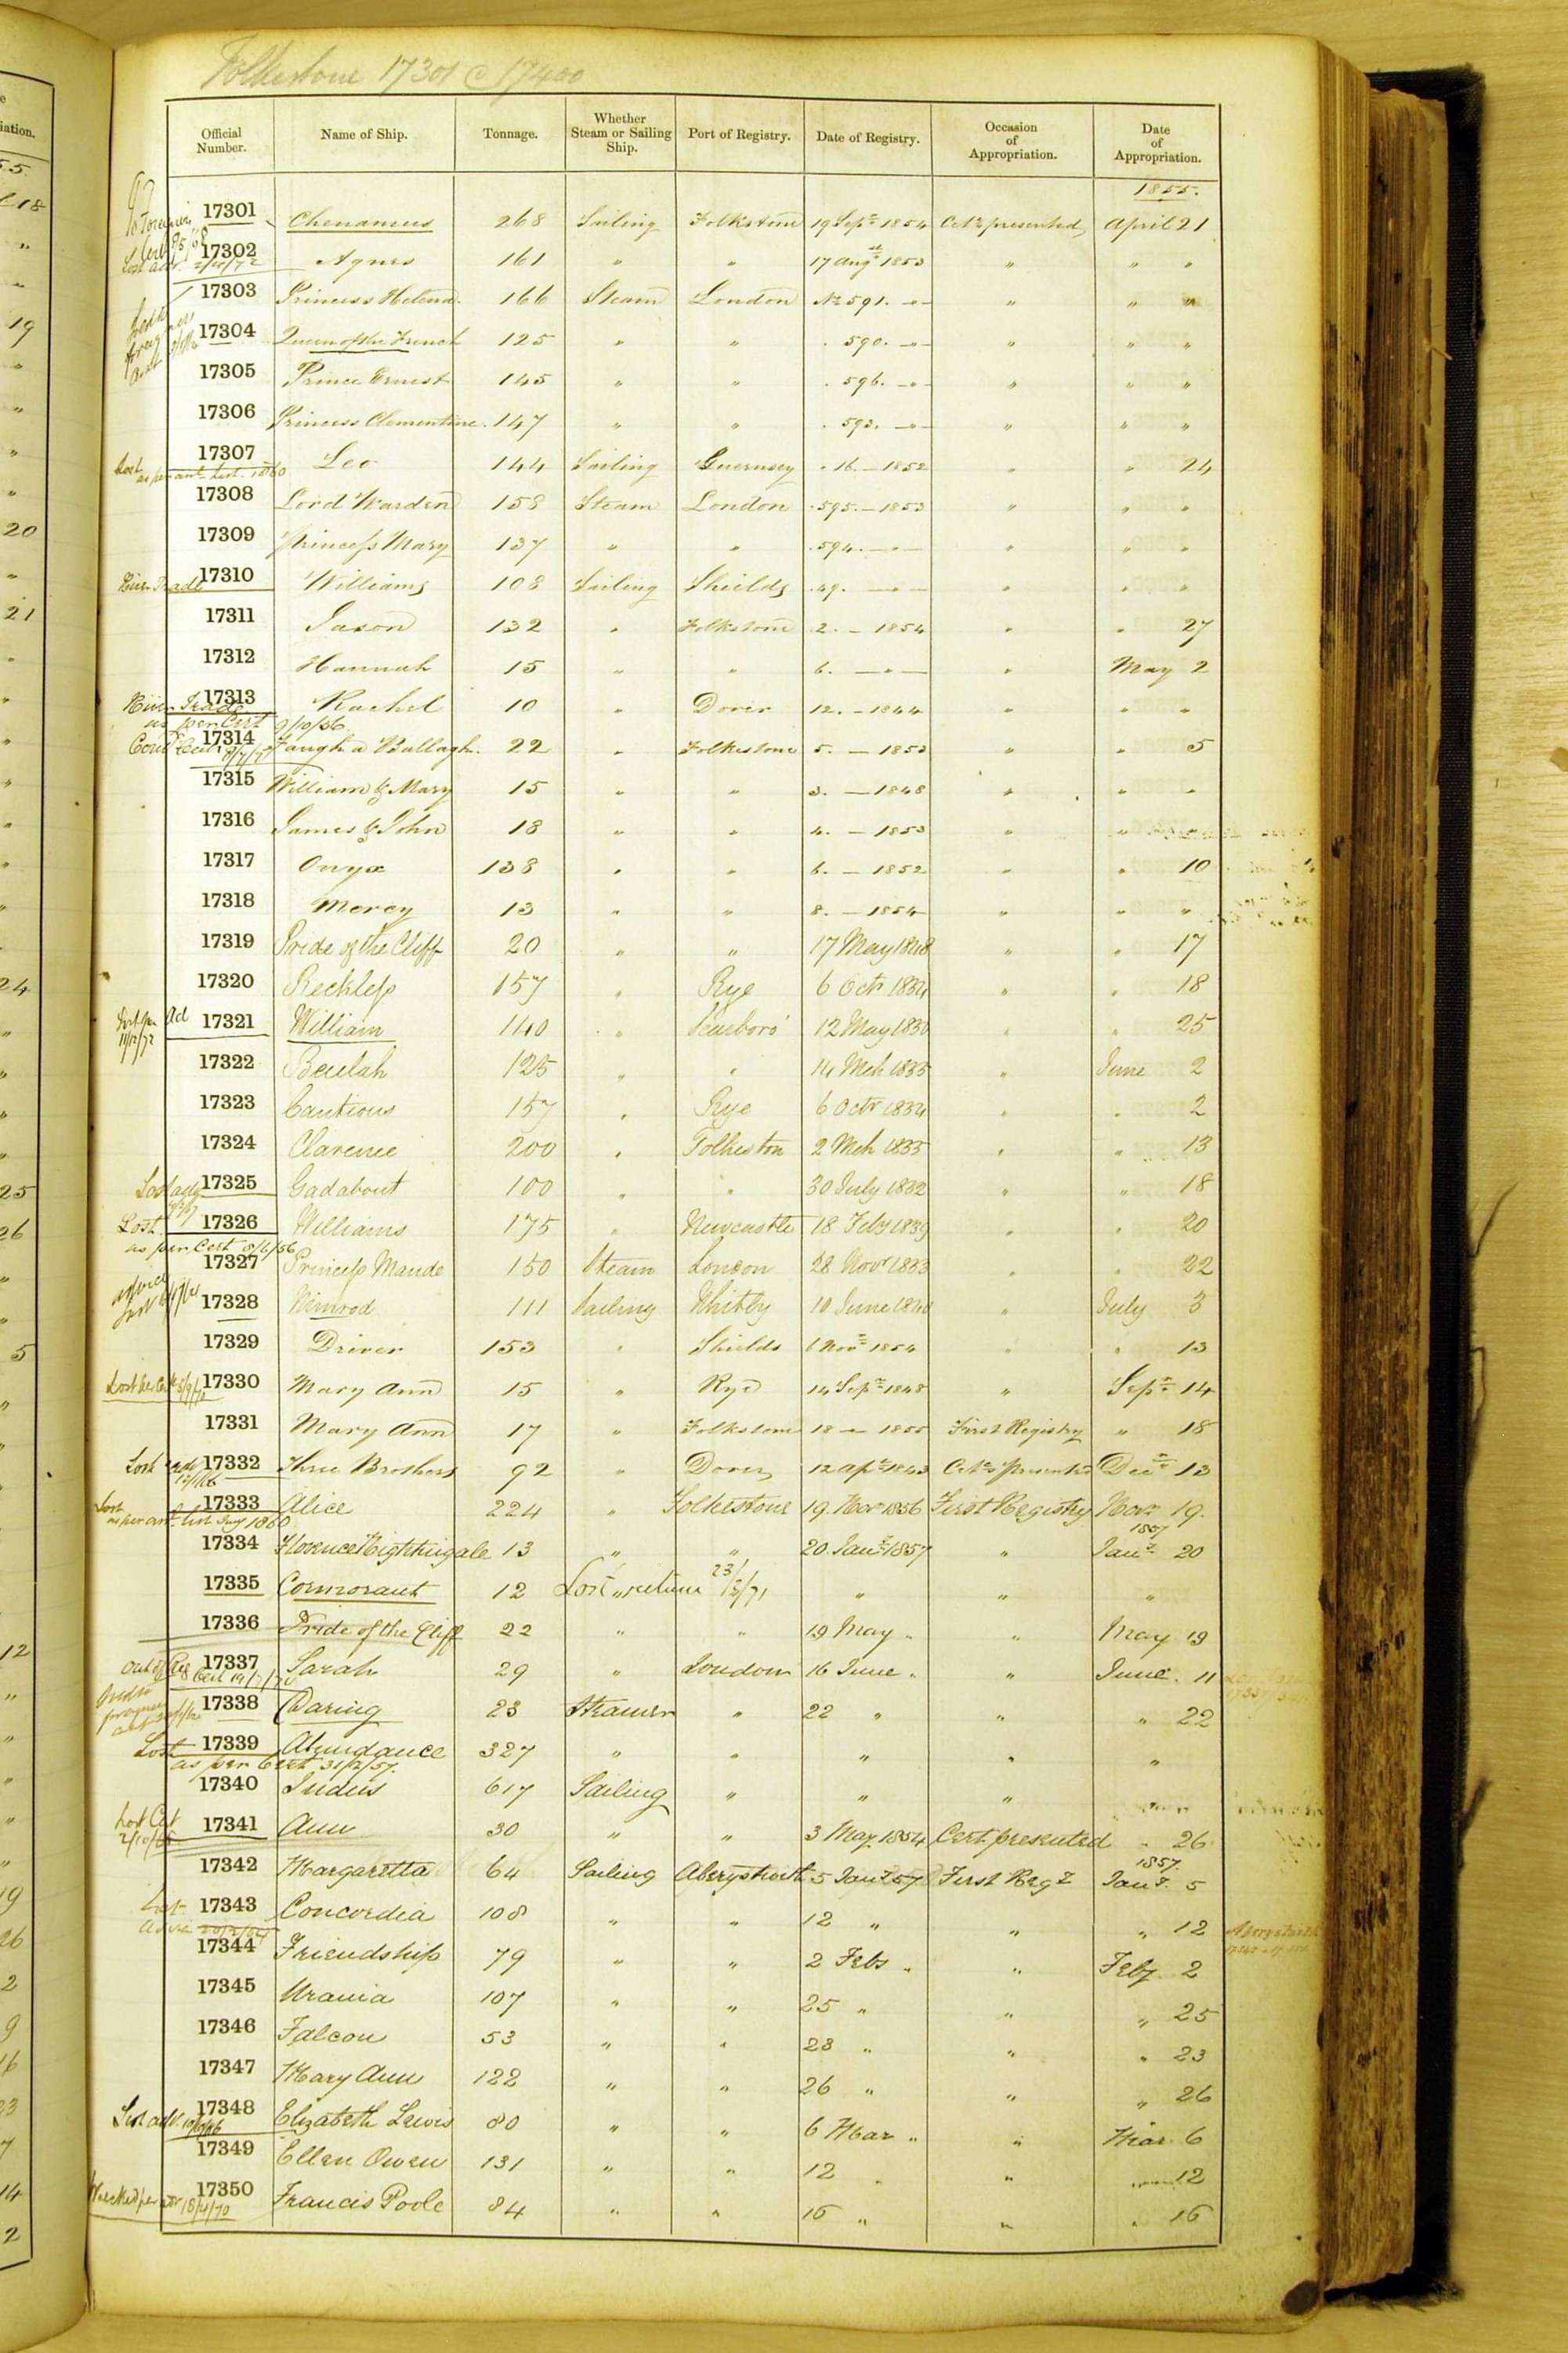 Folkestone 17301 @ 17400
Official Number. Name of Ship. Tonnage. Whether Steam or Sailing Ship. Port of Registry. Date of Registry. Occasion of Appropriation. Date of Appropriation.
1855.
17301 268 Sailing Folkstone 19 Sepr 1854 presented April 21
17302 Agnes 161 " " 17 Augst 1853 " " "
17303 Princess Helena 166 Steam London No 591. -"- " " "
17304 Queen of the French 125 " " . 590. -"- " " "
17305 Prince Ernest 145 " " . 596. -"- " " "
17306 Princess Clementine. 147 " " . 592. -"- " " "
17307 Leo 144 Sailing Guernsey . 16. - 1852 " " 24
17308 Lord Warden 158 Steam London . 595. - 1853 " " "
17309 Princess Mary 137 " " . 594. -"- " " "
River Trade 17310 Williams 108 Sailing Shields . 49. -"- " " "
17311 Jason 132 " Folkstone 2. - 1854 " " 27
17312 Hannah 15 " " 6. -"- " May 2
River Trade 17313 Rachel 10 " Dover 12. - 1844 " " "
as per Cert 9/10/56
17314 Faugh a Ballagh. 22 " Folkestone 5. - 1853 " " 5
17315 William & Mary 15 " " 3. - 1848 " " "
17316 James & John 18 " " 4. - 1853 " " "
17317 Onyx 138 " " 6. - 1852 " " 10
17318 Mercy 13 " " 8. - 1854 " " "
17319 Pride of the Cliff 20 " " 17 May 1848 " " 17
17320 Reckless 157 " Rye 6 Octr 1834 " " 18
17321 William 140 " Scarboro' 12 May 1830 " " 25
17322 Beulah 125 " " 14 Mch 1835 " June 2
17323 Cautious 157 " Rye 6 Octr 1834 " " 2
17324 Clarence 200 " Folkeston 2 Mch 1835 " " 13
17325 Gadabout 100 " " 30 July 1832 " " 18
Lost 17326 Williams 175 " Newcastle 18 Feby 1839 " " 20
as per Cert 8/6/56
17327 Princess Maude 150 Steam London 28 Novr 1833 " " 22
17328 Nimrod 111 Sailing Whitby 10 June 1840 " July 3
17329 Driver 153 " Shields 6 Novr 1854 " " 13
17330 Mary Ann 15 " Rye 14 Sepr 1848 " Sepr 14
17331 Mary Ann 17 " Folkstone 18 " 1855 First Registry " 18
Lost 17332 Three Brothers 92 " Dover 12 Apr 1843 presented Decr 13
Lost 17333 Alice 224 " Folkestone 19. Novr 1856 First Registry Novr 19.
1857
17334 Florence Nightingale 13 " " 20. Jany 1857 " Jany 20
17335 Cormorant 12 Lost return 23/5/71 " " "
17336 Pride of the Cliff 22 " " 19 May " " May 19
17337 Sarah 29 " London 16 June " " June. 11
17338 Daring 23 Steamer " 22 " " " 22
Lost 17339 Abundance 327 " " " " "
as per Cert 31/12/57.
17340 Indus 617 Sailing " " "
Lost Cert 17341 Ann 30 " " 3 May 1854 Cert presented " 26
1857.
17342 Margaretta 64 Sailing Aberystwith 5 Jany 57 First Regy Jany. 5
17343 Concordia 108 " " 12 " " " 12
17344 Friendship 79 " " 2 Feby " " Feby 2
17345 Urania 107 " " 25 " " " 25
17346 Falcon 53 " " 23 " " " 23
17347 Mary Ann 122 " " 26 " " " 26
17348 Elizabeth Lewis 80 " " 6 Mar " " Mar. 6
17349 Ellen Owen 131 " " 12 " " 12
17350 Francis Poole 84 " " 16 " " " 16